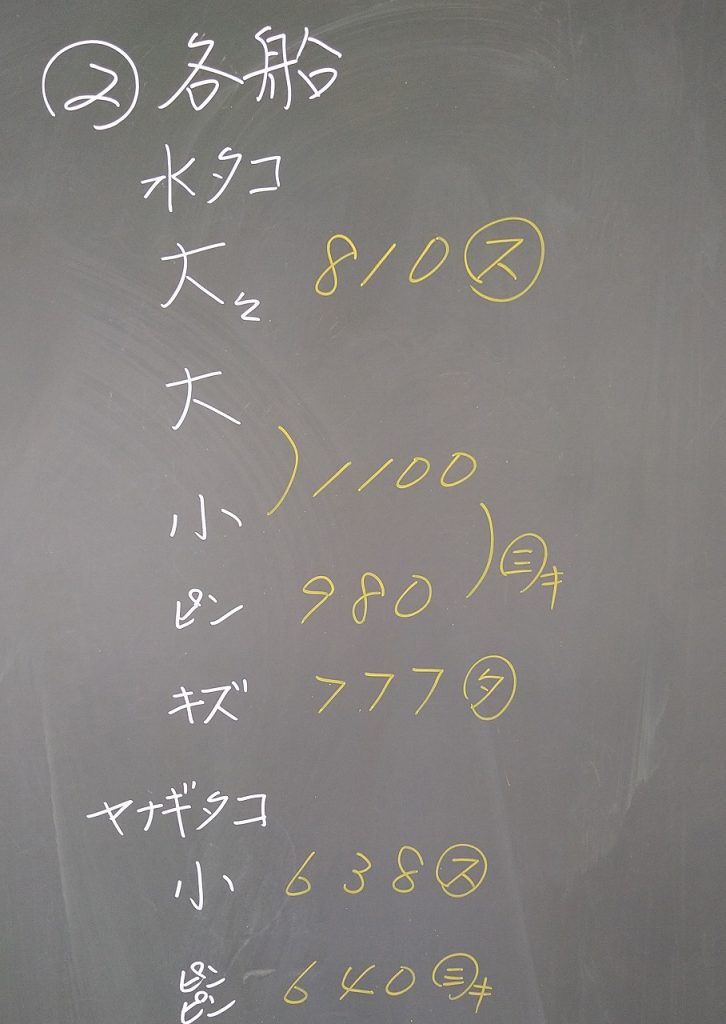 ②各船
水タコ
大々 810 ㋜
大
) 1100
小
) ㊂キ
ピン 980
キズ 777 ㋟
ヤナギタコ
小 638 ㋜
ピンピン 640 ㊂キ